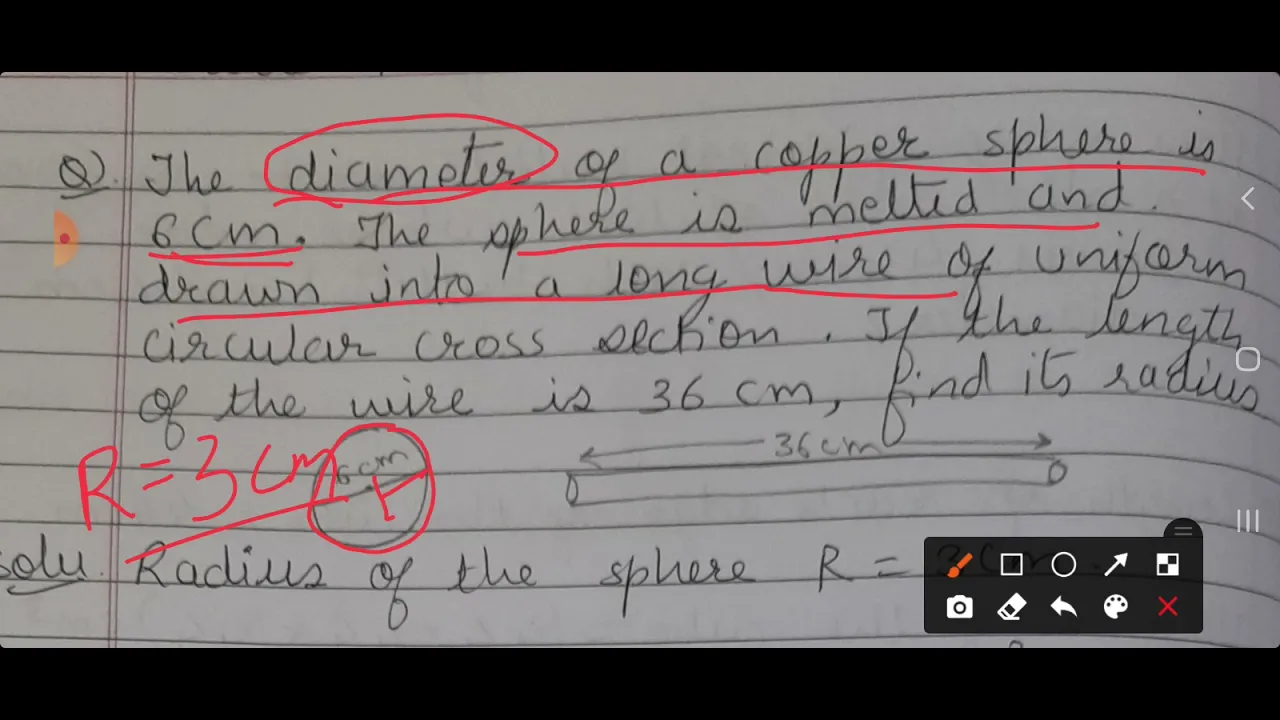 Q. The diameter of a copper sphere is
6 cm. The sphere is melted and
drawn into a long wire of uniform
circular cross section. If the length
of the wire is 36 cm, find its radius
R = 3 cm
6 cm
r
36 cm
Solu. Radius of the sphere R = 3 cm.